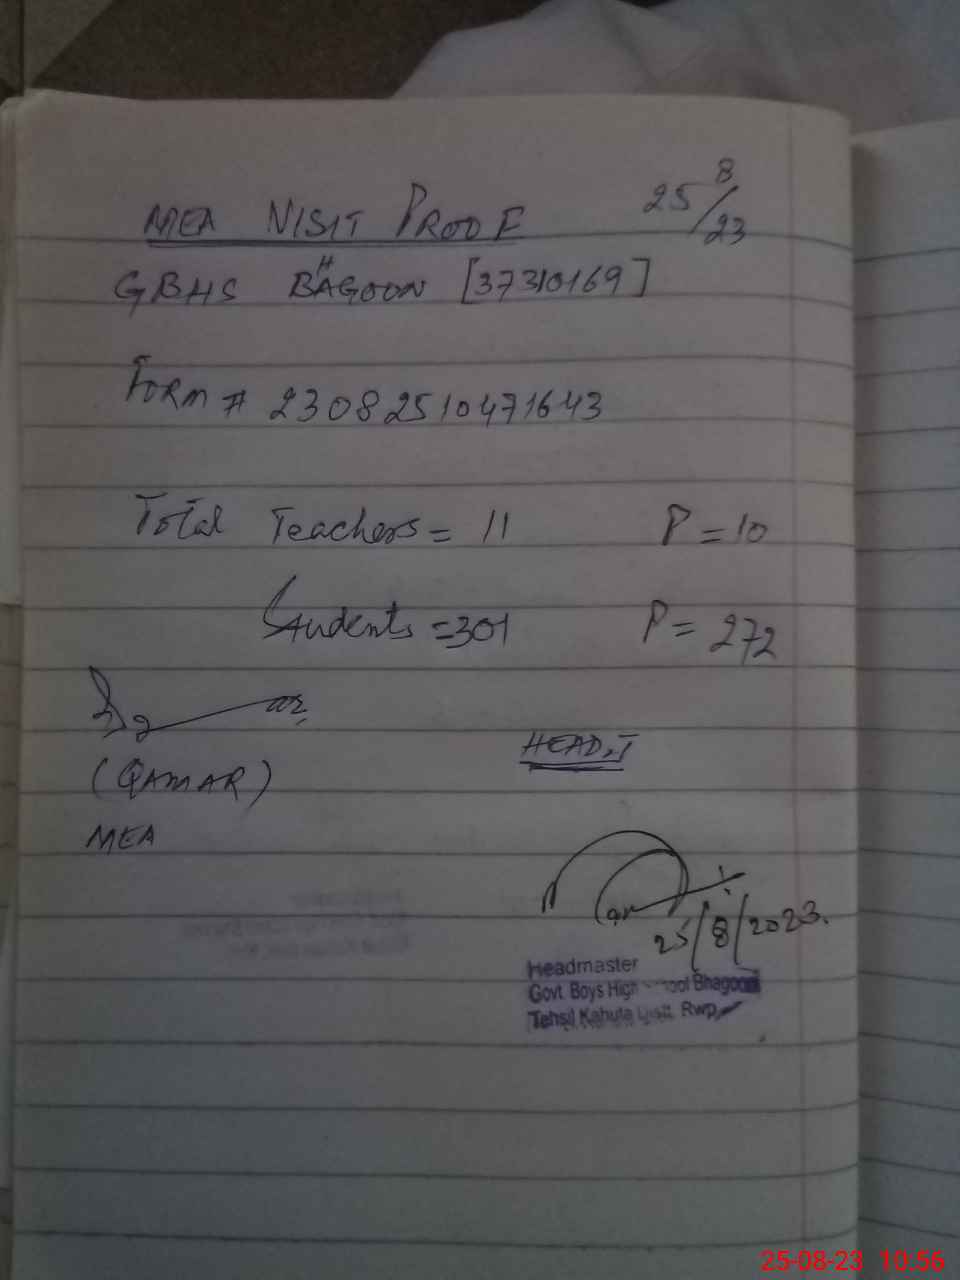 MEA VISIT PROOF 25/8/23
GBHS BHAGOON [37310169]
FORM # 23082510471643
Total Teachers = 11 P = 10
Students = 301 P = 272
(QAMAR)
MEA
HEAD.T
25/8/2023.
Headmaster
Govt. Boys High School Bhagoon
Tehsil Kahuta Distt. Rwp
25-08-23 10:56